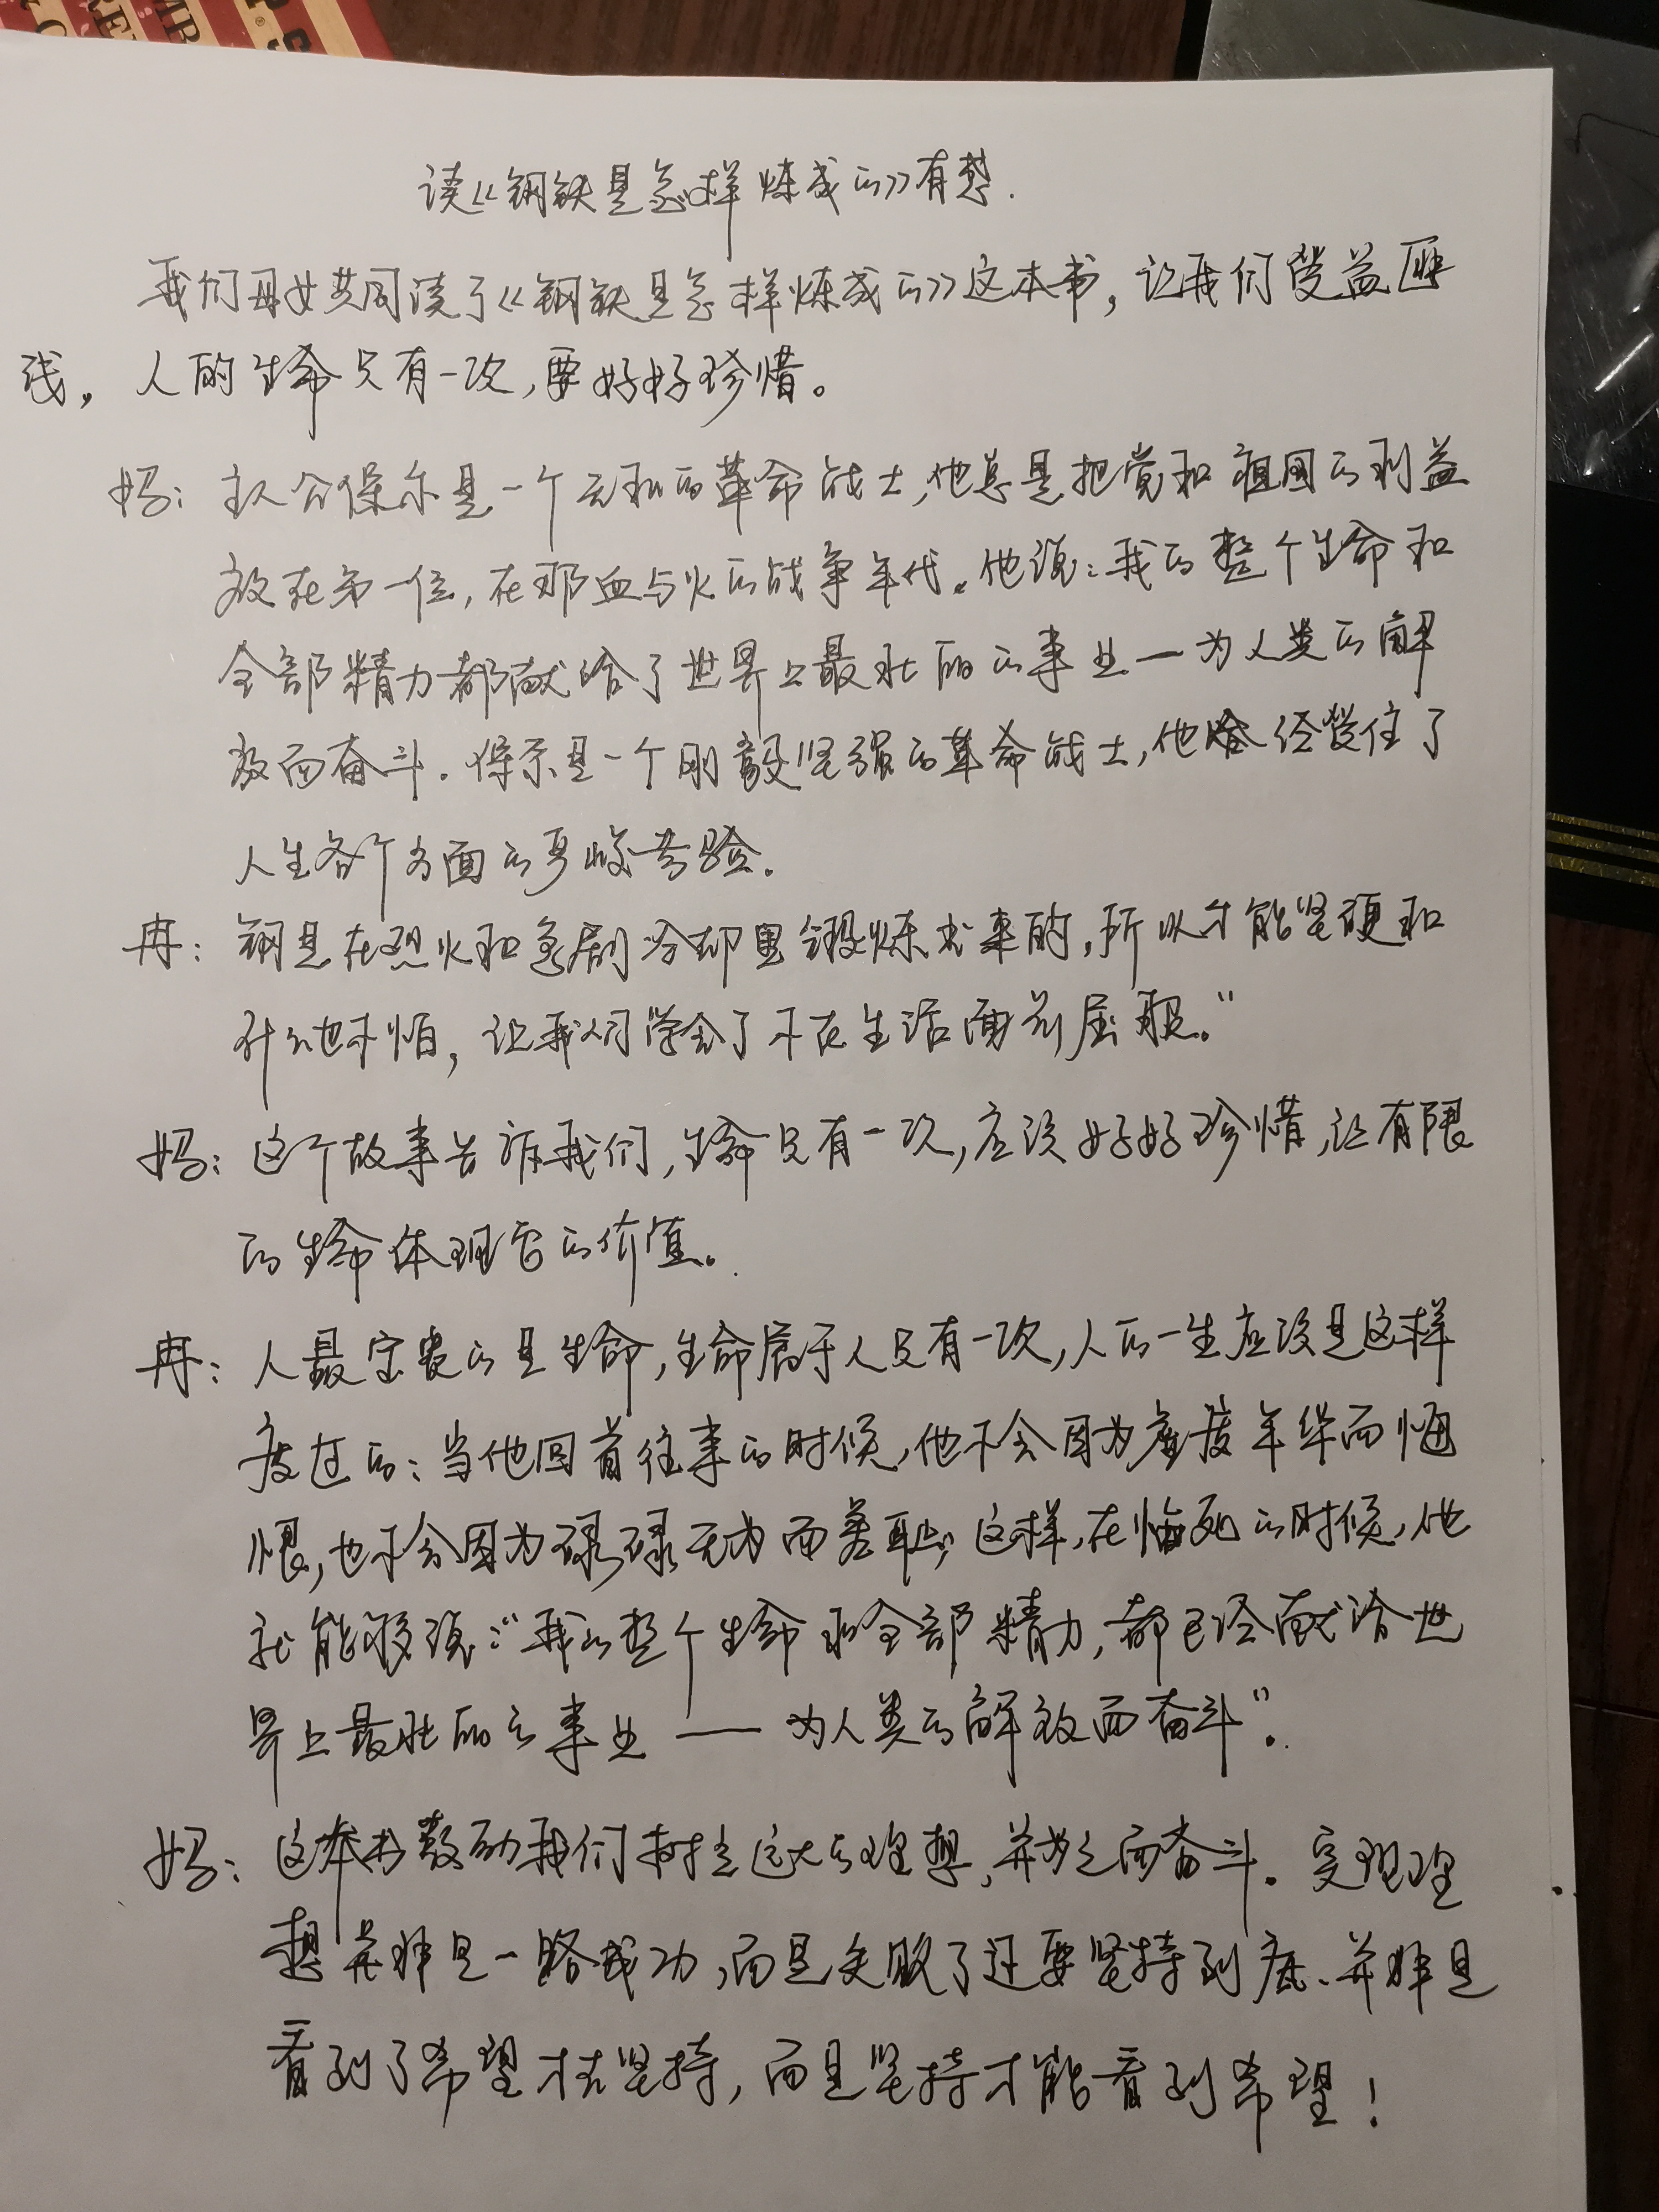 读《钢铁是怎样炼成的》有想.
我们母女共同读了《钢铁是怎样炼成的》这本书，让我们受益匪
浅，人的生命只有一次，要好好珍惜。
妈：主人公保尔是一个无私的革命战士，他总是把党和祖国的利益
放在第一位，在那血与火的战争年代。他说：我的整个生命和
全部精力都献给了世界上最壮丽的事业一为人类的解
放而奋斗.保尔是一个刚毅坚强的革命战士，他经受住了
人生各个方面的严峻考验.
冉：钢是在烈火和急剧冷却里锻炼出来的，所以才能坚硬和
什么也不怕，让我们学会了不在生活面前屈服."
妈：这个故事告诉我们，生命只有一次，应该好好珍惜，让有限
的生命体现它的价值。
冉：人最宝贵的是生命，生命属于人只有一次，人的一生应该是这样
度过的：当他回首往事的时候，他不会因为虚度年华而悔
恨，也不会因为碌碌无为而羞耻；这样，在临死的时候，他
就能够说："我的整个生命和全部精力，都已经献给世
界上最壮丽的事业——为人类的解放而奋斗"。
妈：这本书鼓励我们树立远大的理想，并为之而奋斗。实现理
想并非是一路成功，而是失败了还要坚持到底、并非是
看到了希望才去坚持，而是坚持才能看到希望！